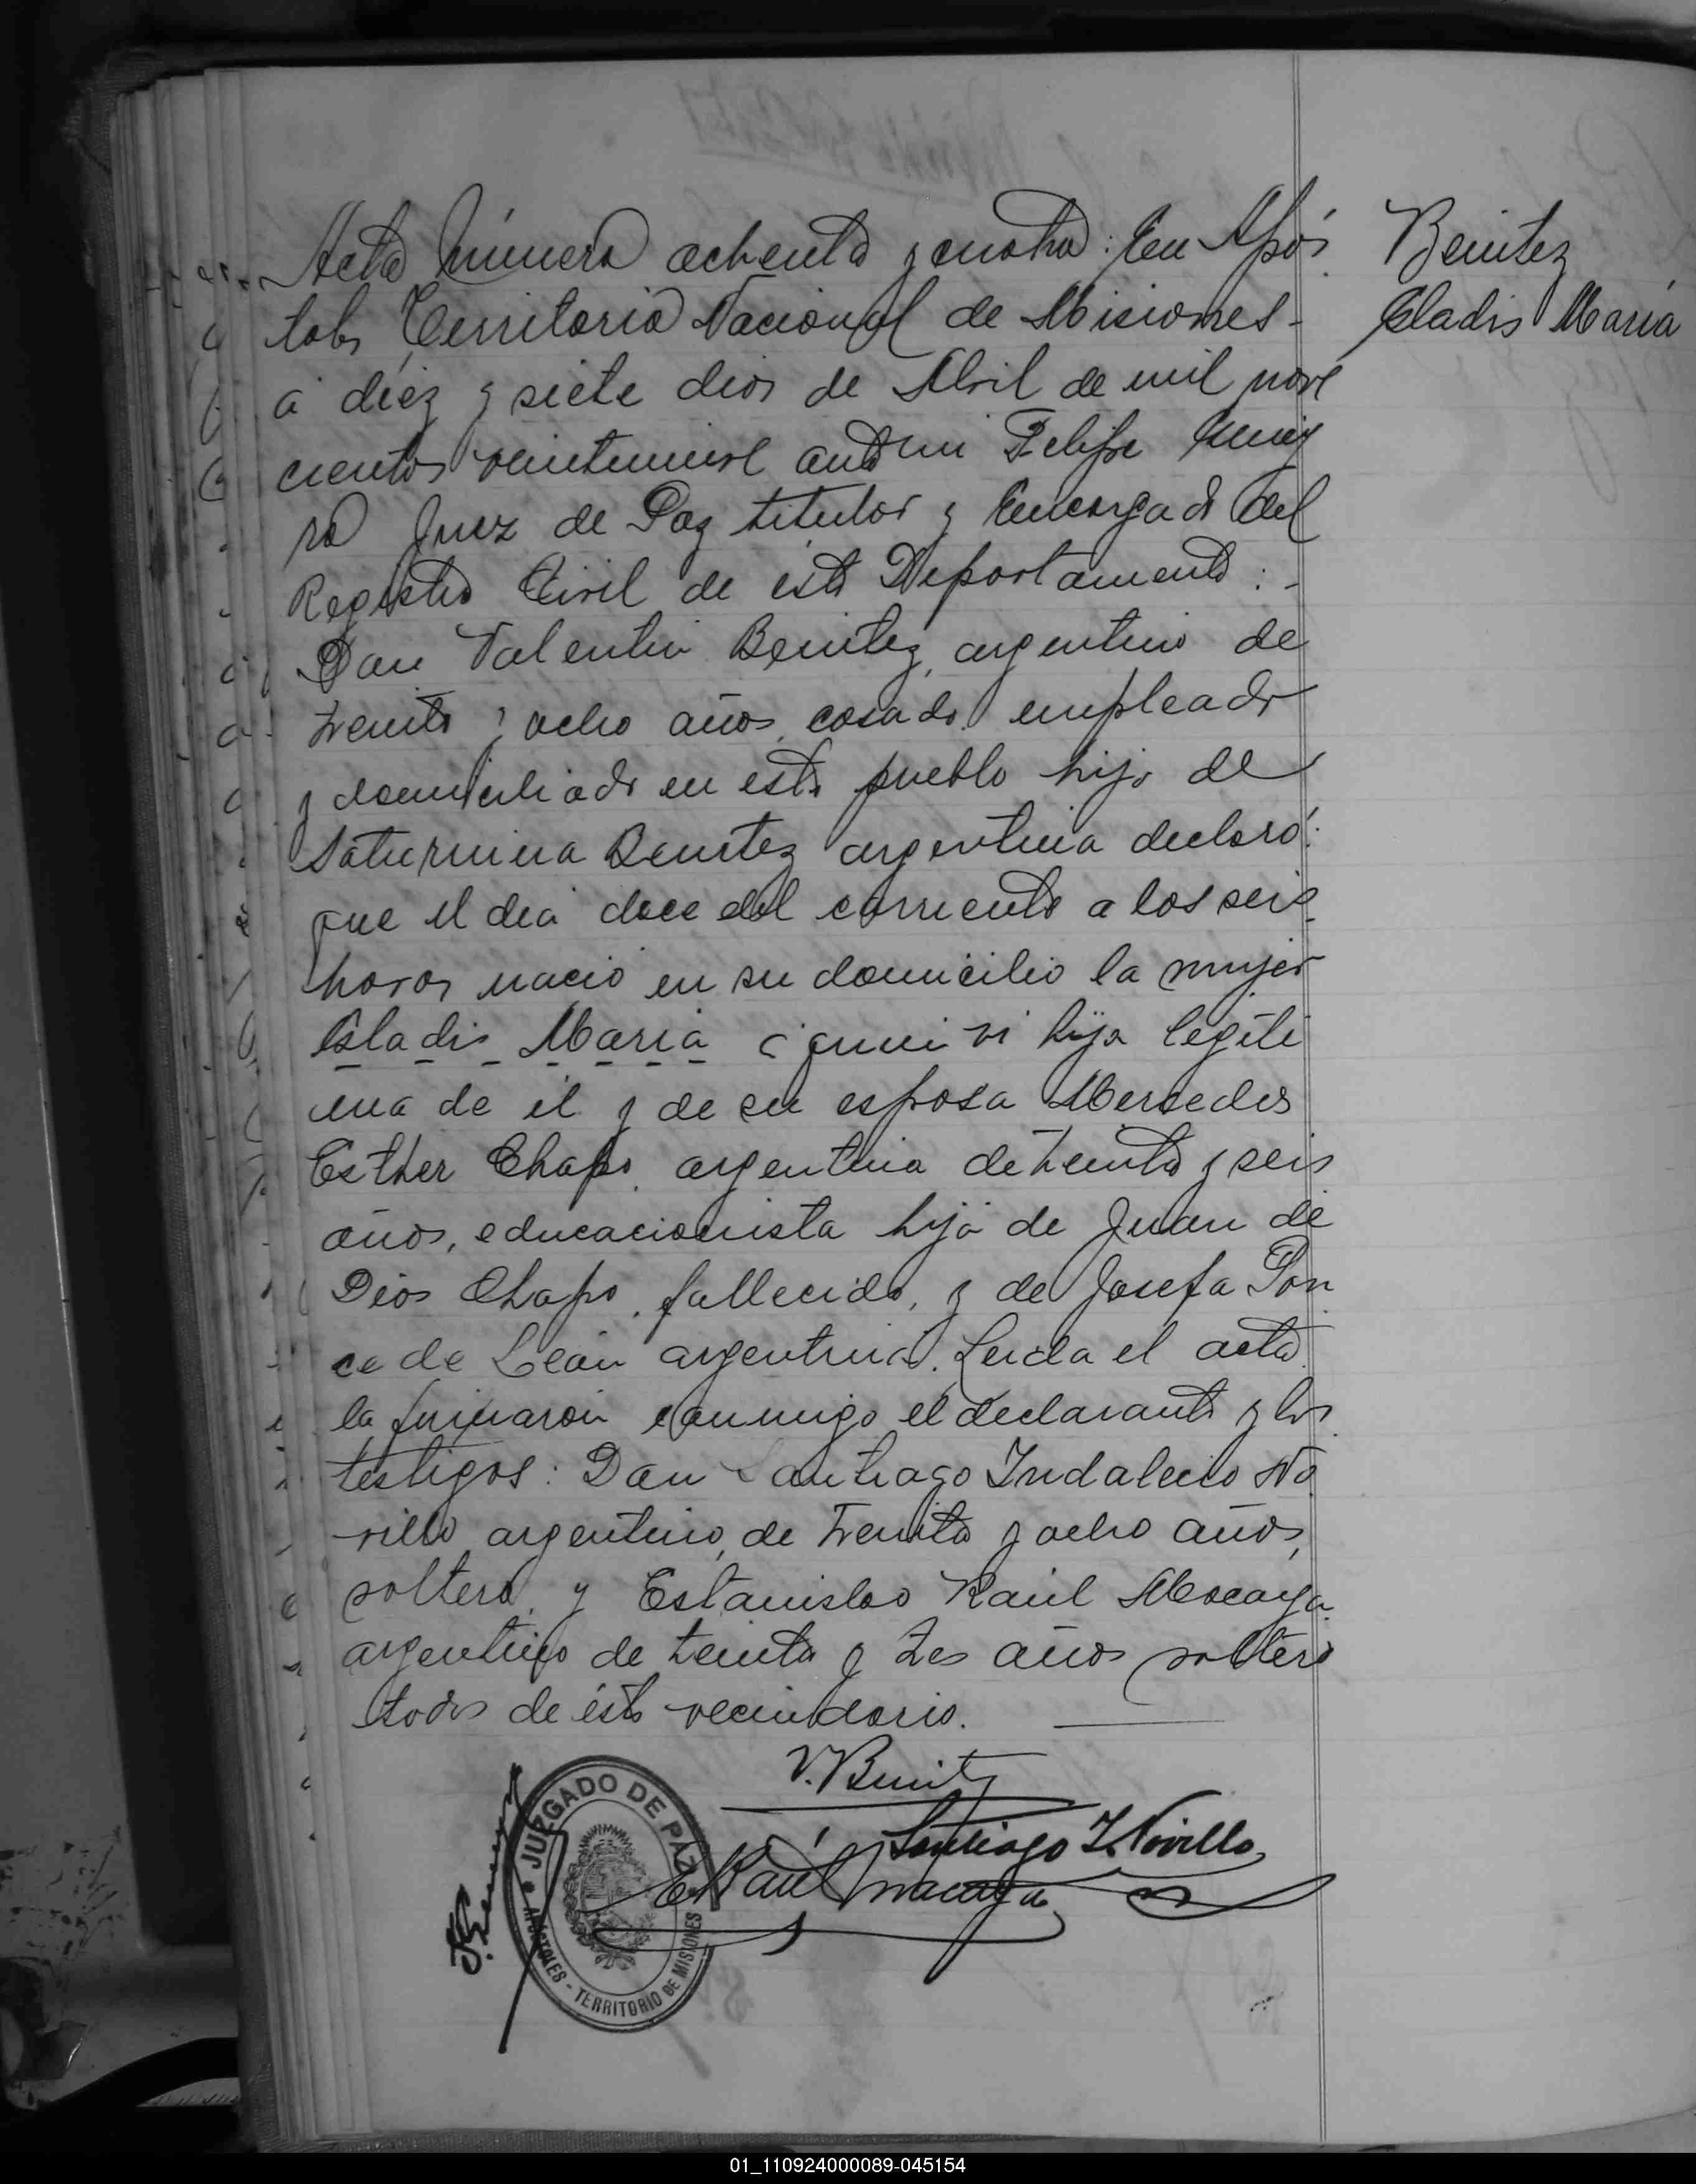 Acta Número ochenta y cuatro: En Após
toles Territorio Nacional de Misiones-
a diez y siete dias de Abril de mil nove
cientos veintinueve ante mi Felipe
ro Juez de Paz titular y Encargado del
Registro Civil de este Departamento:-
Don Valentin Benitez, argentino de
treinta y ocho años, casado, empleado
y domiciliado en este pueblo hijo de
Saturnina Benitez argentina declaró:
que el dia doce del corriente a las seis
horas nació en su domicilio la mujer
Gladis Maria a quien vi hija legiti
ma de él y de su esposa Mercedes
Esther Chapo, argentina de treinta y seis
años, educacionista hija de Juan de
Dios Chapo, fallecido, y de Josefa Pon
ce de León argentina. Leida el acta
la firmaron conmigo el declarante y los
testigos: Don Santiago Indalecio No
villo argentino, de treinta y ocho años,
soltero, y Estanislao Raúl Macaya
argentino de treinta y tres años soltero
todos de este vecindario.
Benitez
Gladis Maria
V. Benitez
Santiago I. Novillo
E Raúl Macaya
JUZGADO DE PAZ
APÓSTOLES - TERRITORIO DE MISIONES
01_110924000089-045154